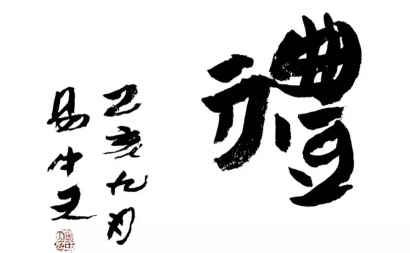 禮
己亥九月
易中天